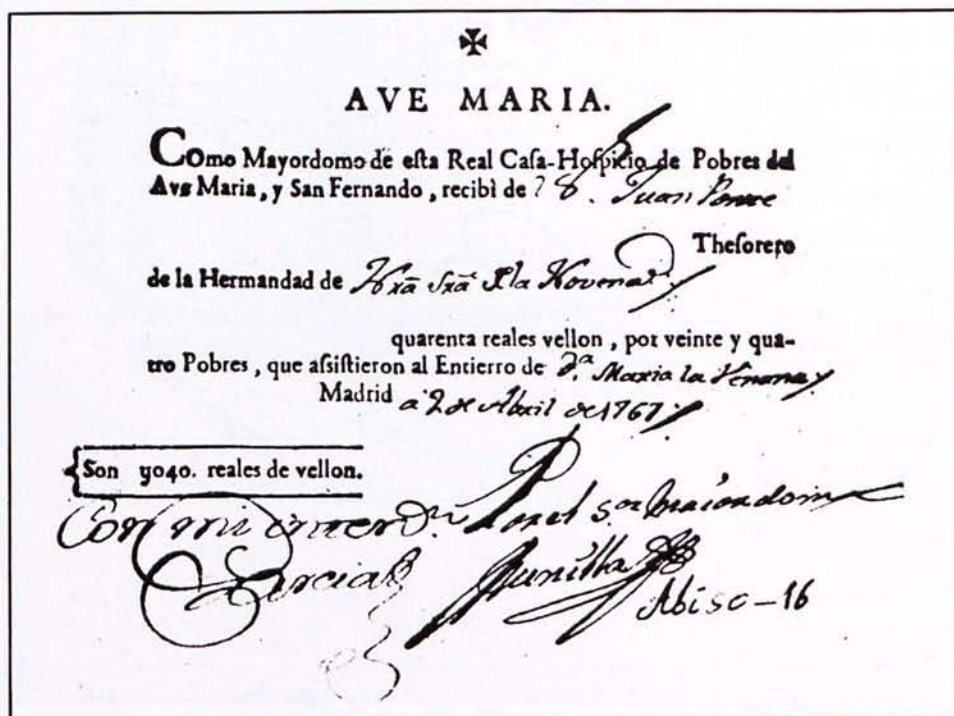 ✠
AVE MARIA.
COmo Mayordomo de esta Real Casa-Hospicio de Pobres del
Ave Maria, y San Fernando, recibì de D. Juan Ponce
Thesorero
de la Hermandad de Nrã Srã de la Novena
quarenta reales vellon, por veinte y qua-
tro Pobres, que assistieron al Entierro de d.ª Maria la
Madrid a 2 de Abril de 1767
Son yo40. reales de vellon.
Con mi Por el S.or Maiordomo
Garcia
Abiso-16